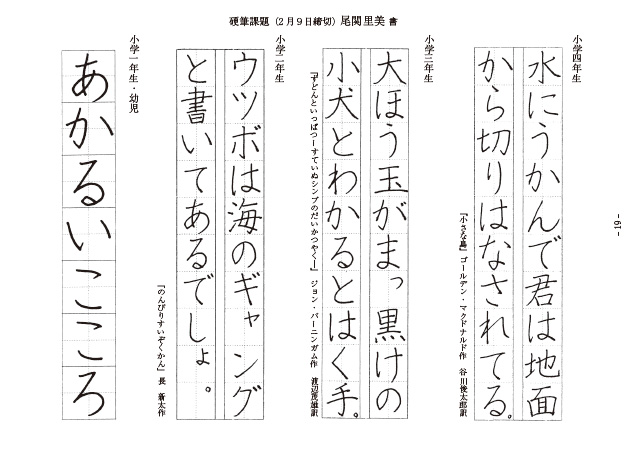 硬筆課題（２月９日締切）尾関里美 書
小学四年生
水にうかんで君は地面
から切りはなされてる。
『小さな島』 ゴールデン・マクドナルド作 谷川俊太郎訳
小学三年生
大ほう玉がまっ黒けの
小犬とわかるとはく手。
『ずどんといっぱつーすていぬシンプのだいかつやくー』 ジョン・バーニンガム作 渡辺茂雄訳
小学二年生
ウツボは海のギャング
と書いてあるでしょ。
『のんびりすいぞくかん』 長 新太作
小学一年生・幼児
あかるいこころ
- 19 -